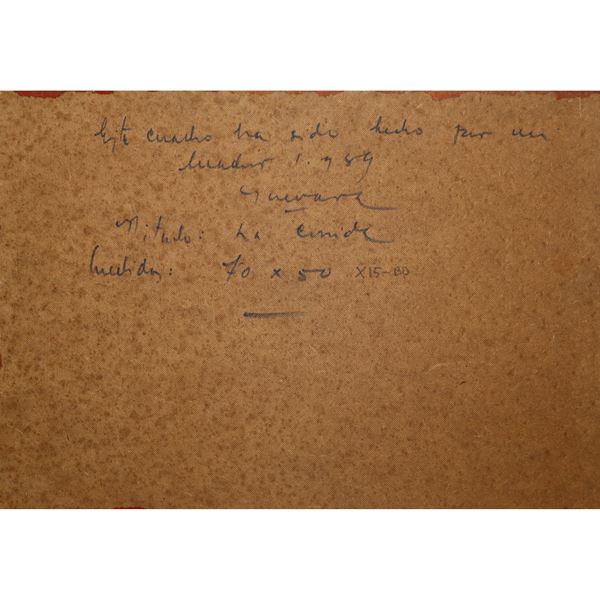 Este cuadro ha sido hecho por mi
Madrid 1.989
Guevara
Titulo: La Comida
Medidas: 70 x 50 X15-BD